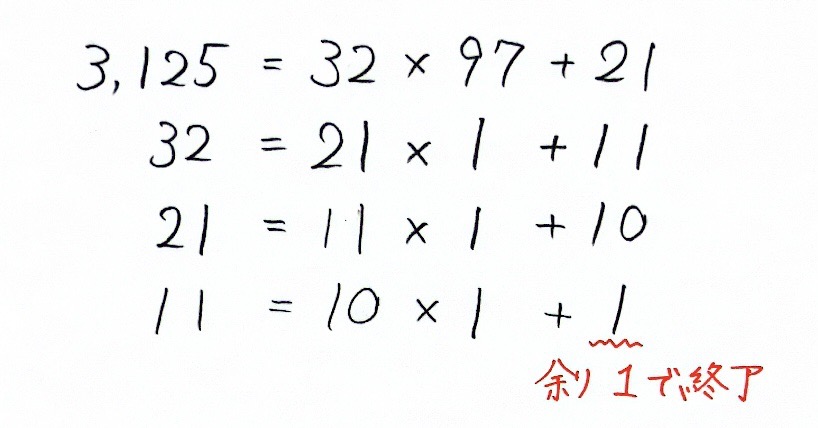 3,125 = 32 × 97 + 21
32 = 21 × 1 + 11
21 = 11 × 1 + 10
11 = 10 × 1 + 1
余り1で終了